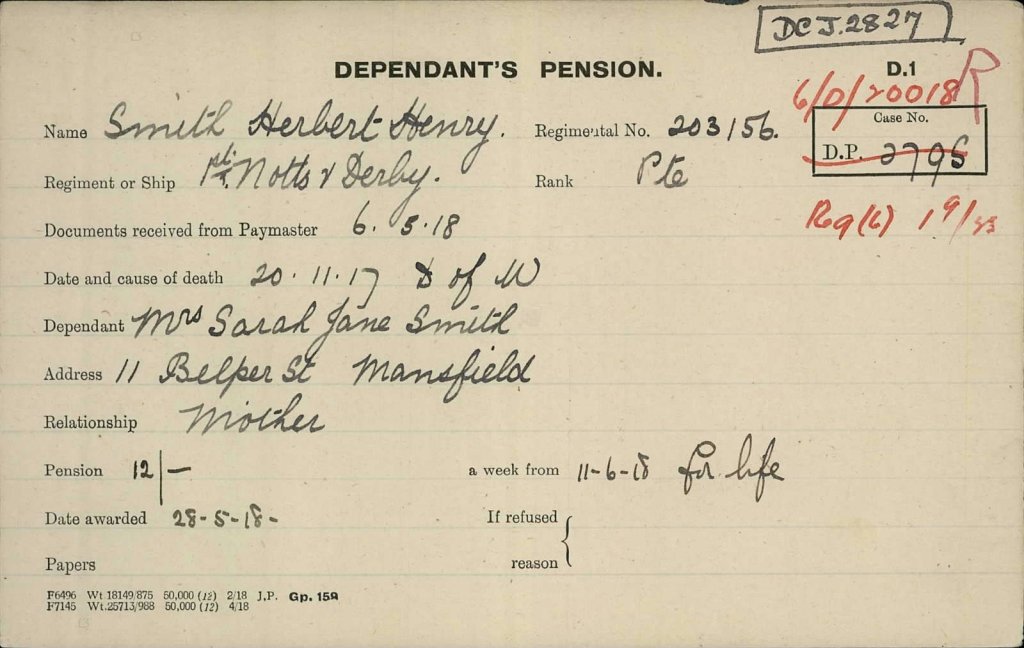 DCJ.2827
DEPENDANT'S PENSION.
D.1
6/D/20018 R
Name Smith Herbert Henry. Regimental No. 203156.
Case No.
D.P. 2795
Regiment or Ship 1st Notts & Derby. Rank Pte
Reg (6) 19/43
Documents received from Paymaster 6.5.18
Date and cause of death 20.11.17 D of W
Dependant Mrs Sarah Jane Smith
Address 11 Belper St Mansfield
Relationship Mother
Pension 12/- a week from 11-6-18 for life
Date awarded 28-5-18- If refused
Papers reason
F6496 Wt 18149/875 50,000 (12) 2/18 J.P. Gp. 159
F7145 Wt.25713/988 50,000 (12) 4/18